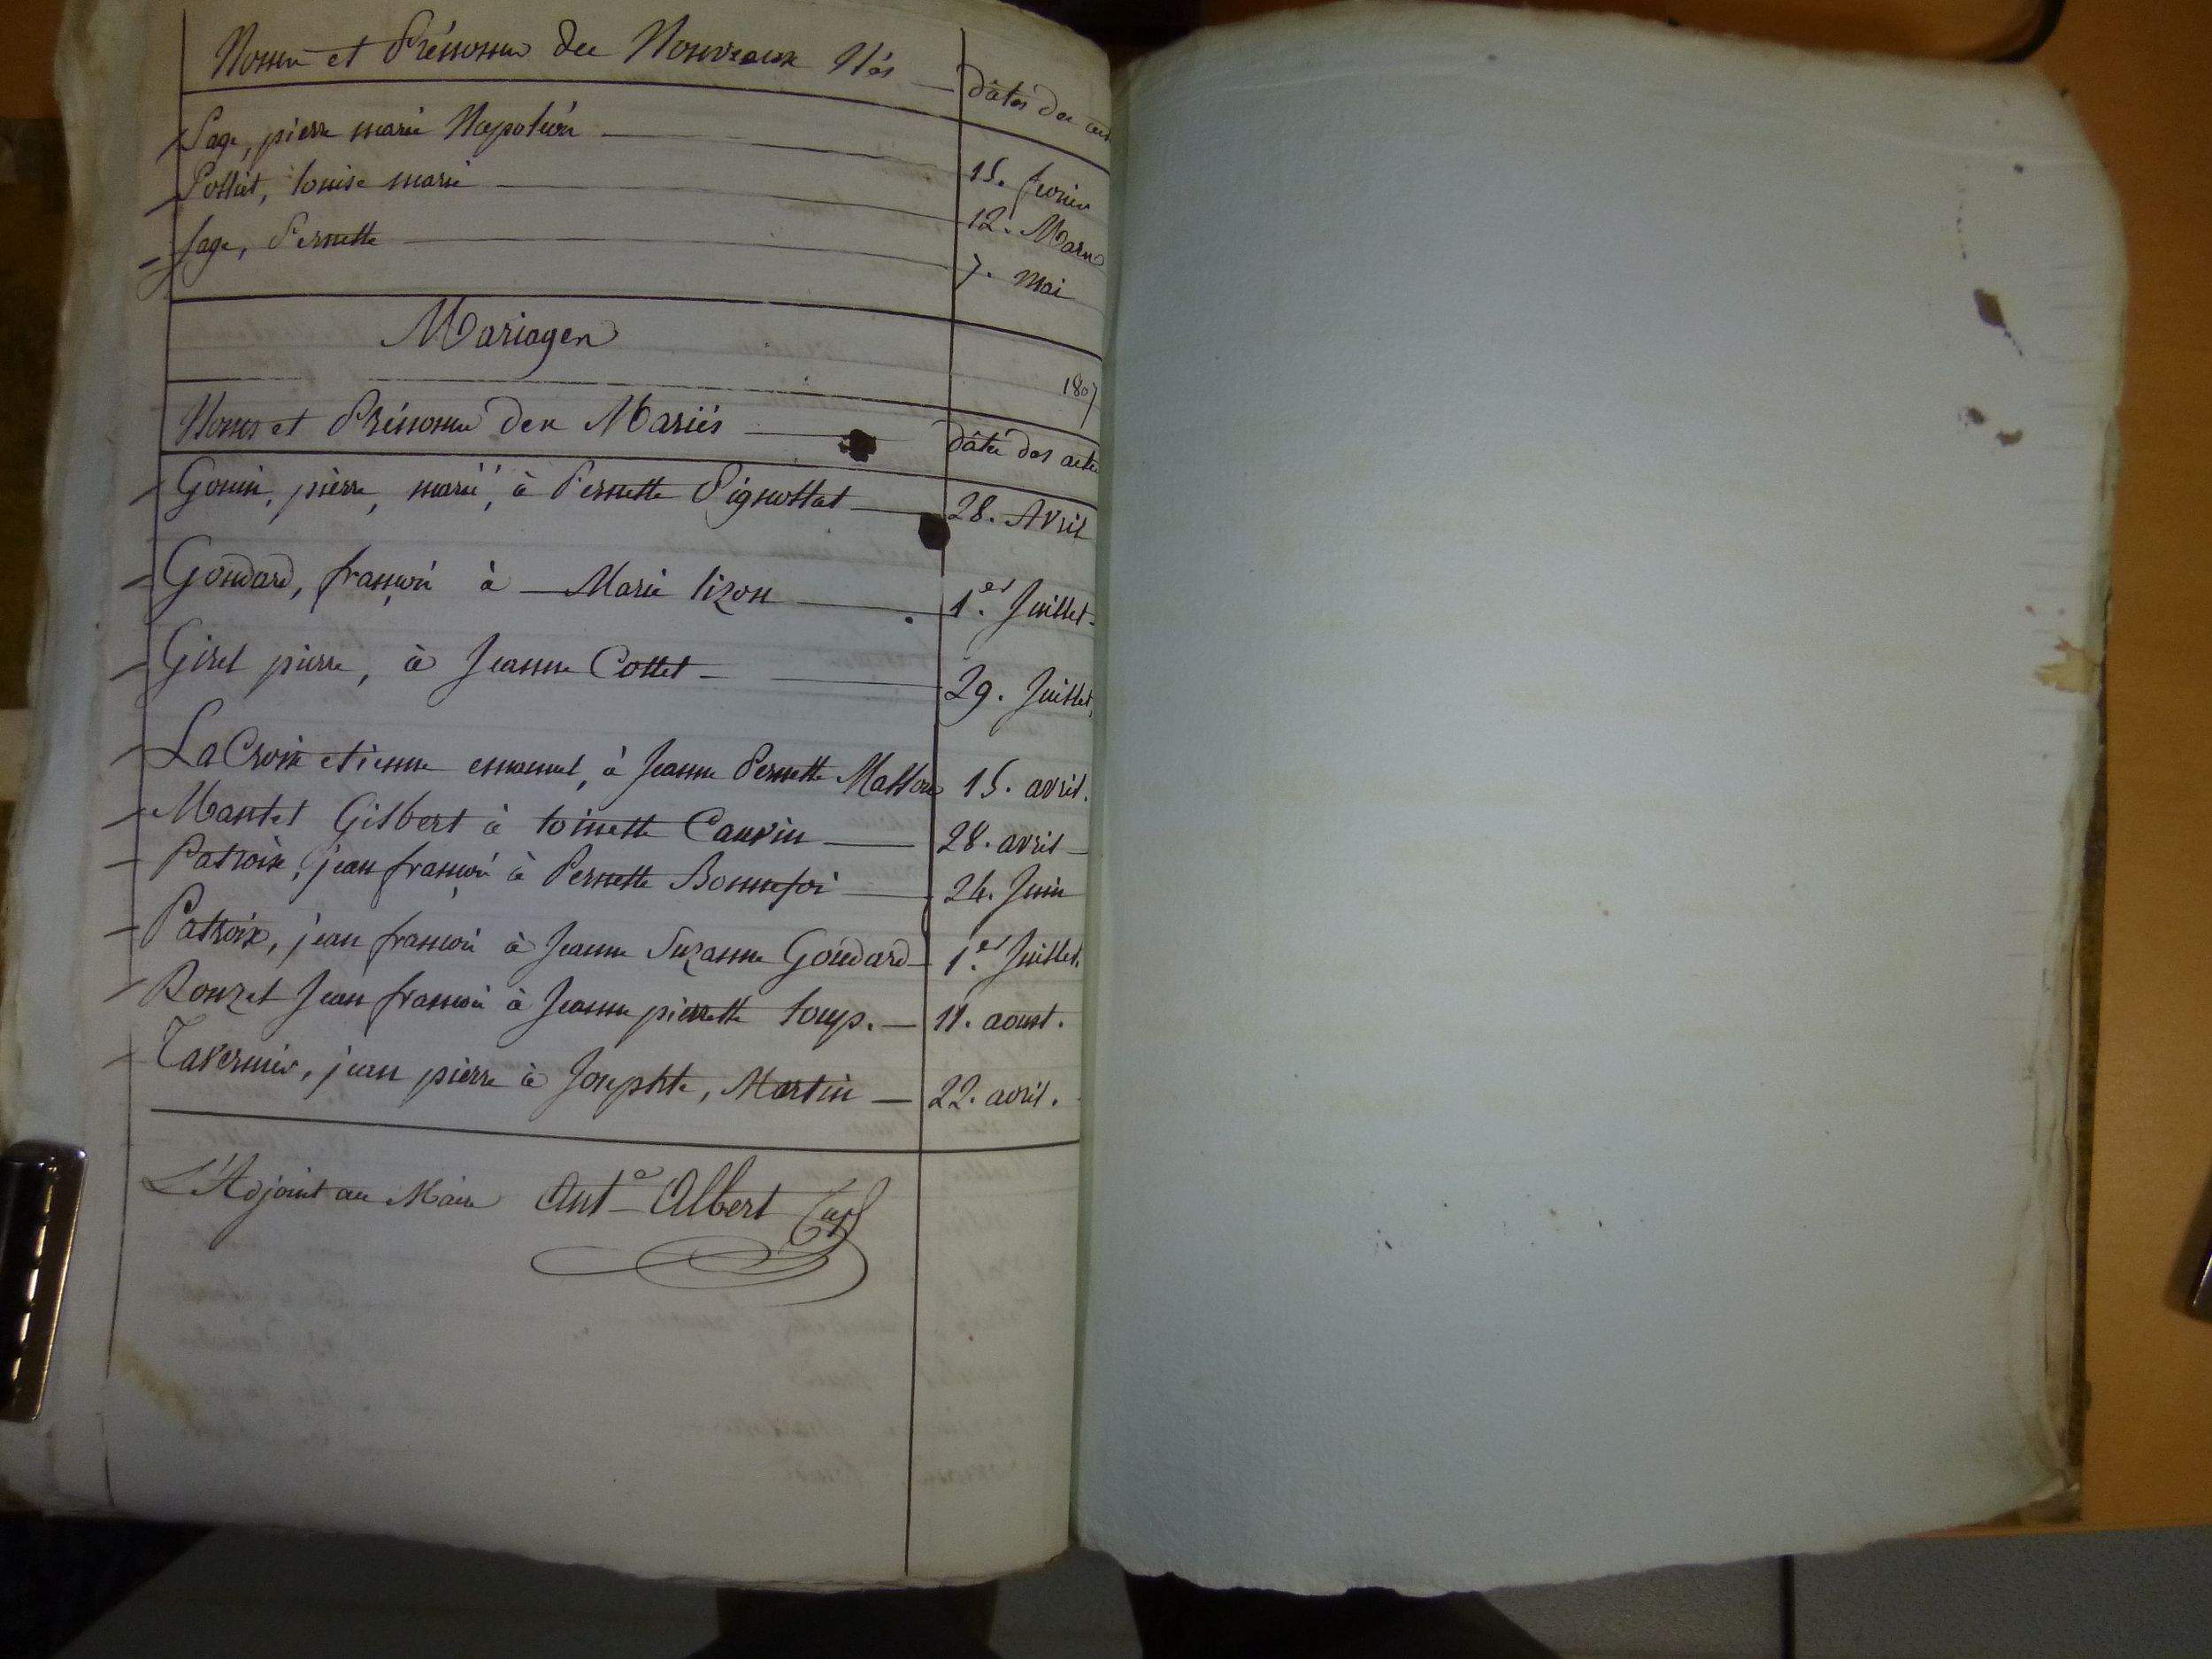 Noms et Prénoms des Nouveaux Nés — dâtes des
Sage, pierre marie Napoléon — 15. fevrier
Pottut, louise marie — 12. Mars
Sage, Pernette — 7. Mai
Mariages
1807
Noms et Prénoms des Mariés — dâtes des actes
Gonin, pierre, marié, à Pernette Pignottat — 28. Avril
Goudard, françois à — Marie lizon — 1er. Juillet
Giret pierre, à Jeanne Cottet — 29. Juillet
La Croix etienne emanuel, à Jeanne Pernette Masson 15. avril.
Mantet Gilbert à toinette Cauvin — 28. avril
Patroix, jean françois à Pernette Bonnefoi — 24. Juin
Patroix, jean françois à Jeanne Suzanne Goudard 1er. Juillet.
Rouzet Jean françois à Jeanne pierrette loup. — 11. aoust.
Tavernier, jean pierre à Josephte, Martin — 22. avril.
L'Adjoint au Maire Ante Albert